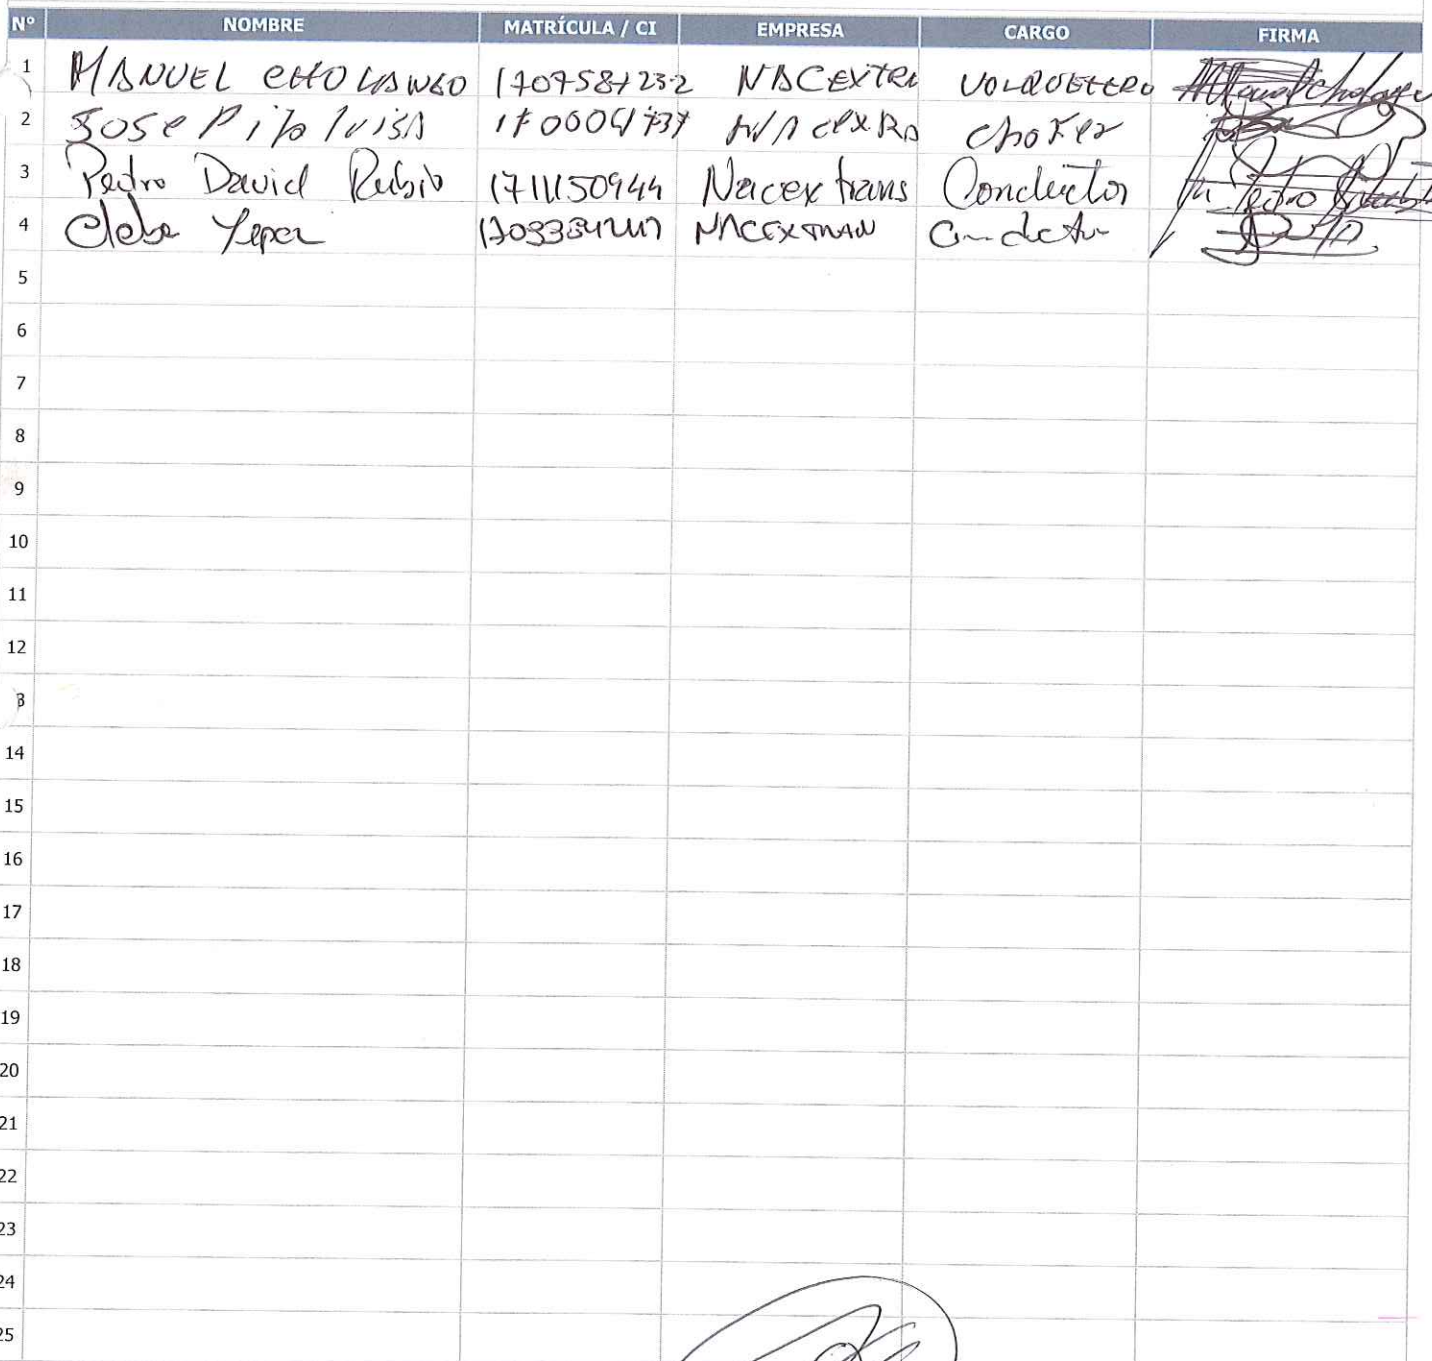 Nº NOMBRE MATRÍCULA / CI EMPRESA CARGO FIRMA
1 MANUEL CHOLANGO 1707581232 NACEXTRA VOLQUETERO
2 Jose Pilaluisa NACEXRA chofer
3 Pedro David Rubio 1711150944 Nacex trans Conductor
4 Yepez NACEXTRAN Conductor
5
6
7
8
9
10
11
12
3
14
15
16
17
18
19
20
21
22
23
24
25